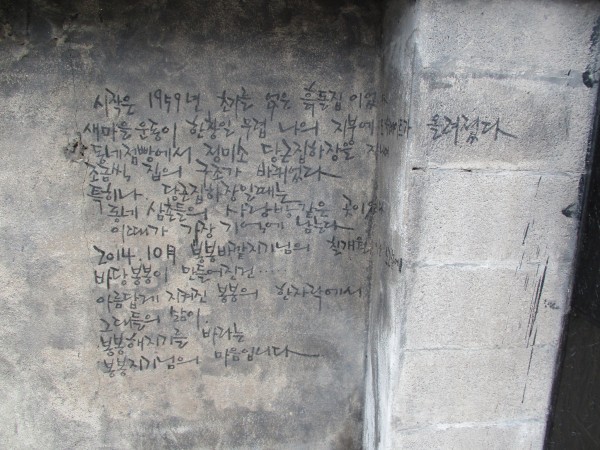 시작은 1959년 초가를 얹은 흙돌집이었
새마을운동이 한창일 무렵 나의 지붕에 올려졌다
동네점빵에서 정미소 당근집하장을 지
조금씩 집의 구조가 바뀌었다
특히나 당근집하장일때는
동네 삼춘들의 사랑방같은 곳이
이때가 가장 기억에 남는다
2014.10月 봉봉바깥지기님의 칠개월
바당봉봉이 만들어진건...
아름답게 지켜진 봉봉의 한자락에서
그대들의 삶이
봉봉해지기를 바라는
봉봉지기님의 마음입니다